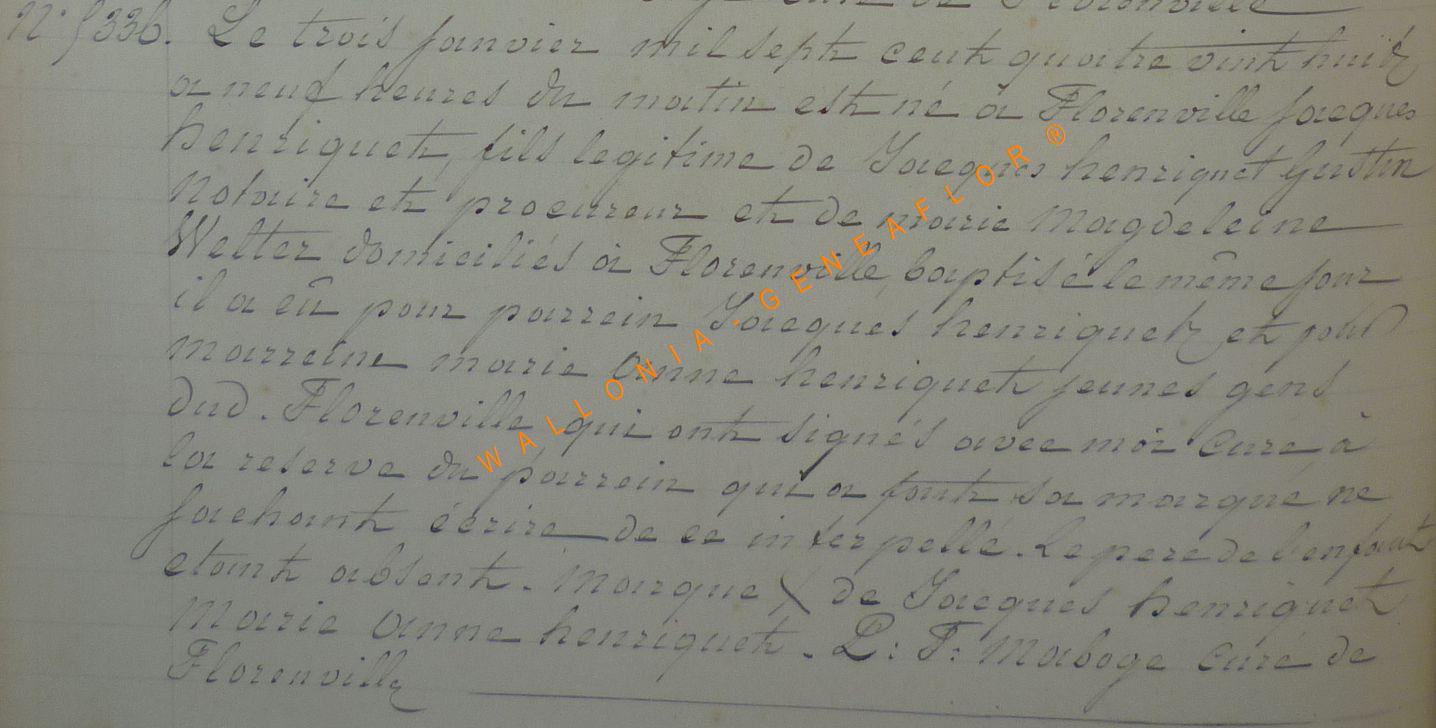 curé de Florenville
N° 5336. Le trois janvier mil sept cent quatre vint huit
a neuf heures du matin est né à Florenville Jacques
henriquet, fils legitime de Jacques henriquet Gustin
Notaire et procureur et de marie Magdeleine
Welter domiciliés à Florenville, baptisé le même jour
il a eû pour parrein Jacques henriquet et pour
marreine marie Anne henriquet jeunes gens
dud. Florenville qui ont signés avec moi curé, à
la reserve du parrein qui a fait sa marque ne
sachant écrire de ce interpellé. Le pere de l'enfant
etant absent. Marque X de Jacques henriquet
Marie Anne henriquet. P: F: Maboge curé de
Florenville
WALLONIA.GENEAFLOR ®